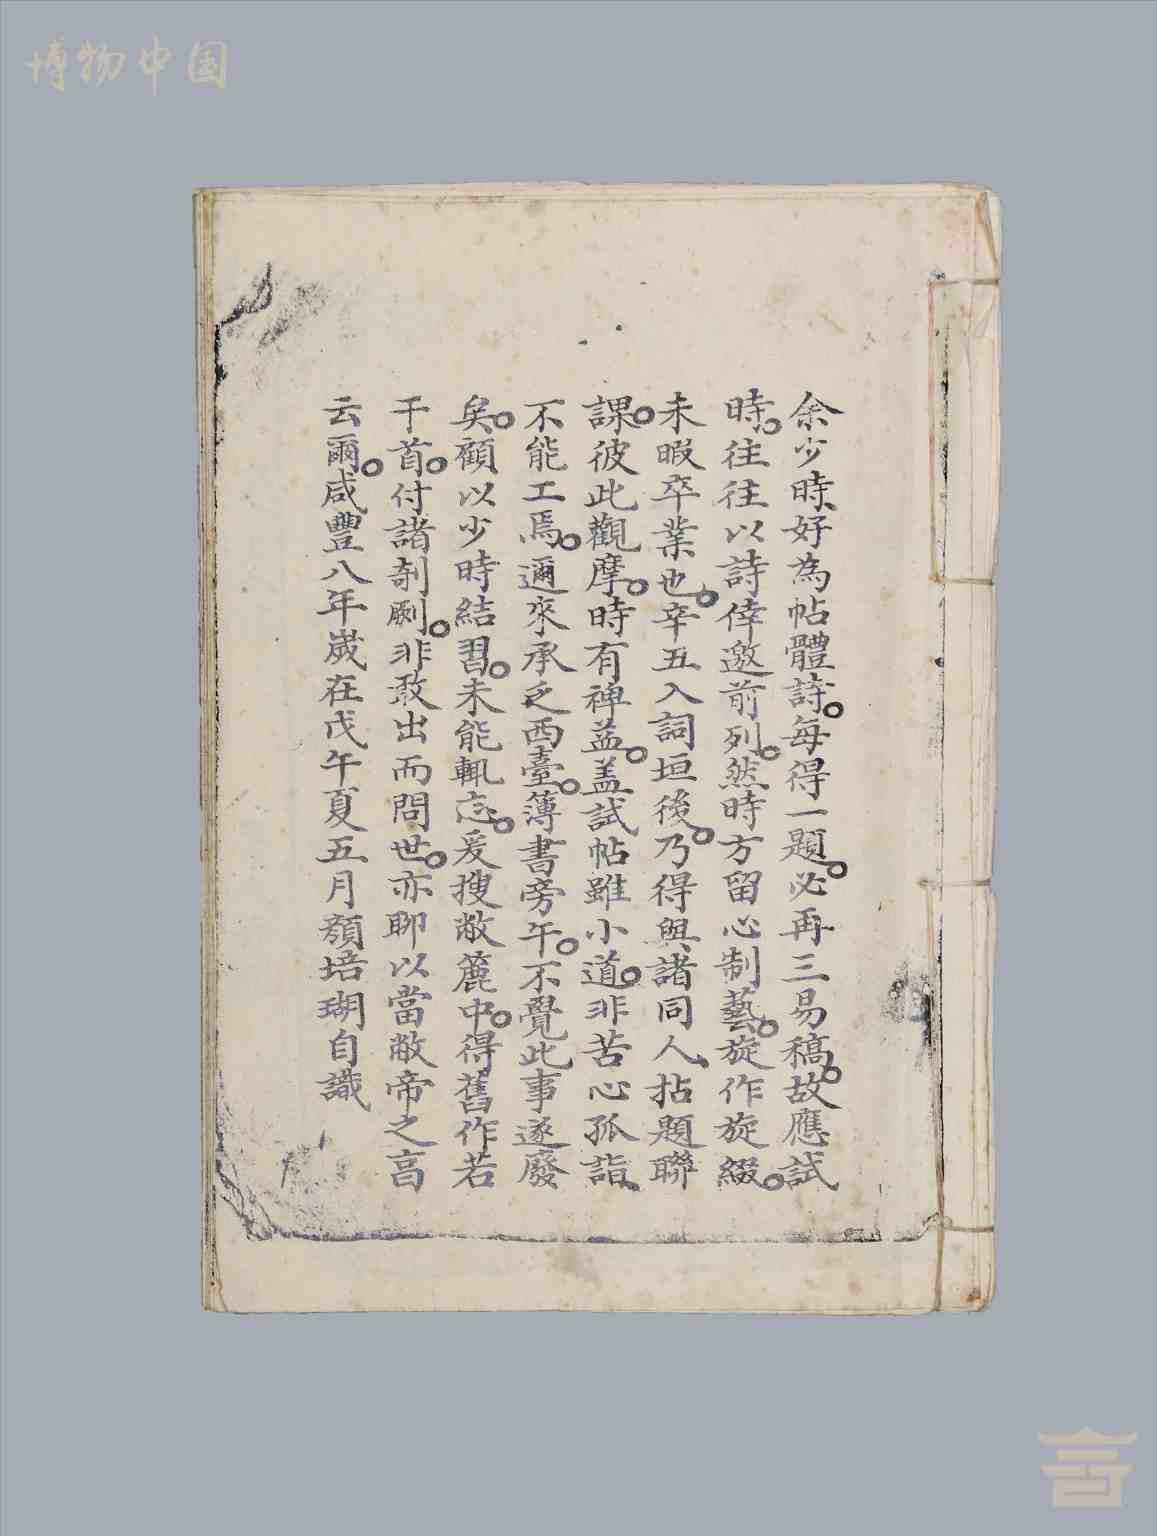 博物中国
余少時好為帖體詩。每得一題。必再三易稿。故應試
時。往往以詩倖邀前列。然時方留心制藝。旋作旋綴。
未暇卒業也。辛丑入詞垣後。乃得與諸同人拈題聯
課。彼此觀摩。時有裨益。盖試帖雖小道。非苦心孤詣、
不能工焉。邇來承乏西臺。簿書旁午。不覺此事遂廢
矣。顧以少時結習。未能輒忘。爰搜敝簏中。得舊作若
干首。付諸剞劂。非敢出而問世。亦聊以當敝帚之享
云爾。咸豐八年嵗在戊午夏五月顏培瑚自識